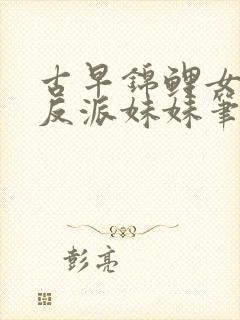 古早锦鲤女
反派妹妹筆
彭亮